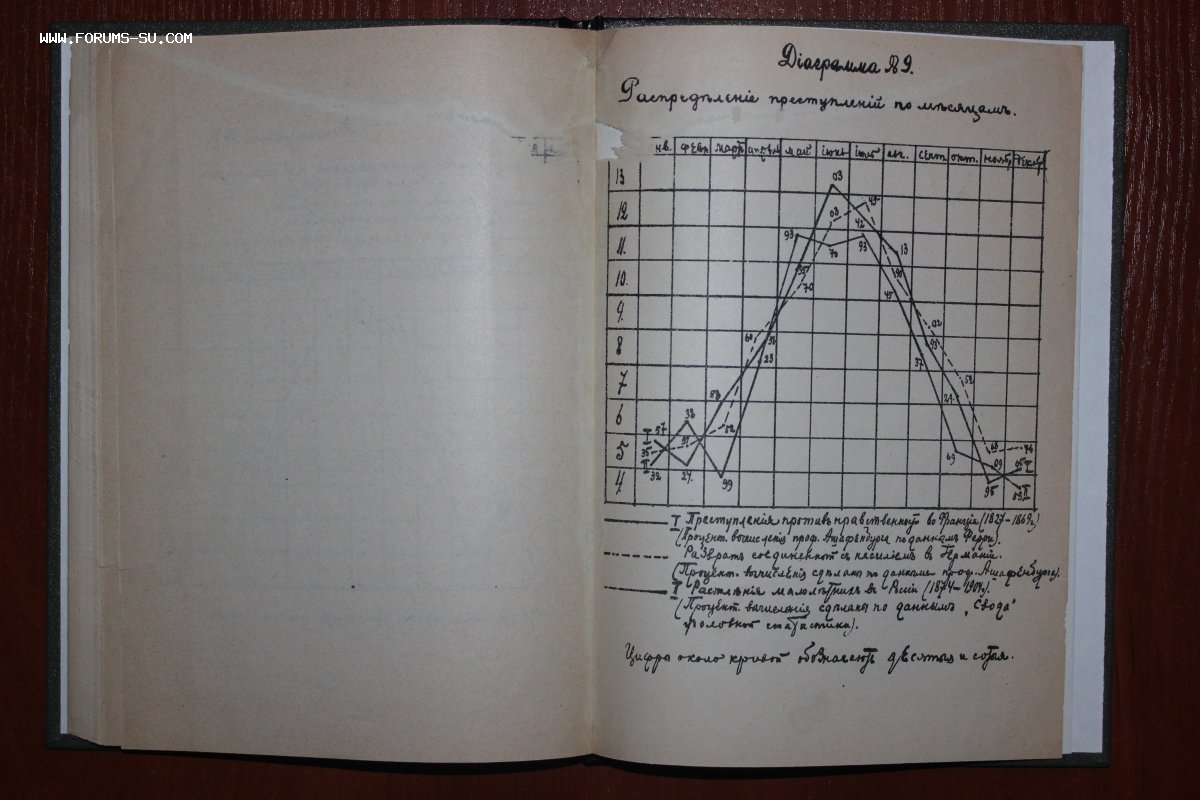 WWW.FORUMS-SU.COM
Діаграмма № 9.
Распредѣленіе преступленій по мѣсяцамъ.
нв. февр март апрѣль май іюнь іюль авг. сент. окт. ноябр декабр
13
03
12
45
03
11. 93 42
70 93 13
10.
70
45
9.
02
8
60
23
37
7
58
52
24
6
38
52
5
57
35
69
09
68
76
4
32
24
99
95
I Преступленія противъ нравственности во Франціи (1827–1869г.)
(Процент. вычисленія проф. Ашафенбурга по даннымъ Ферри).
Развратъ соединенный съ насиліемъ въ Германіи.
(Процент. вычисленія сдѣланы по даннымъ проф. Ашафенбурга).
II Растлѣнія малолѣтнихъ въ Россіи (1874–1904г.).
(Процент. вычисленія сдѣланы по даннымъ „Свода
уголовной статистики).
Цифры около кривой обозначаютъ десятыя и сотыя.